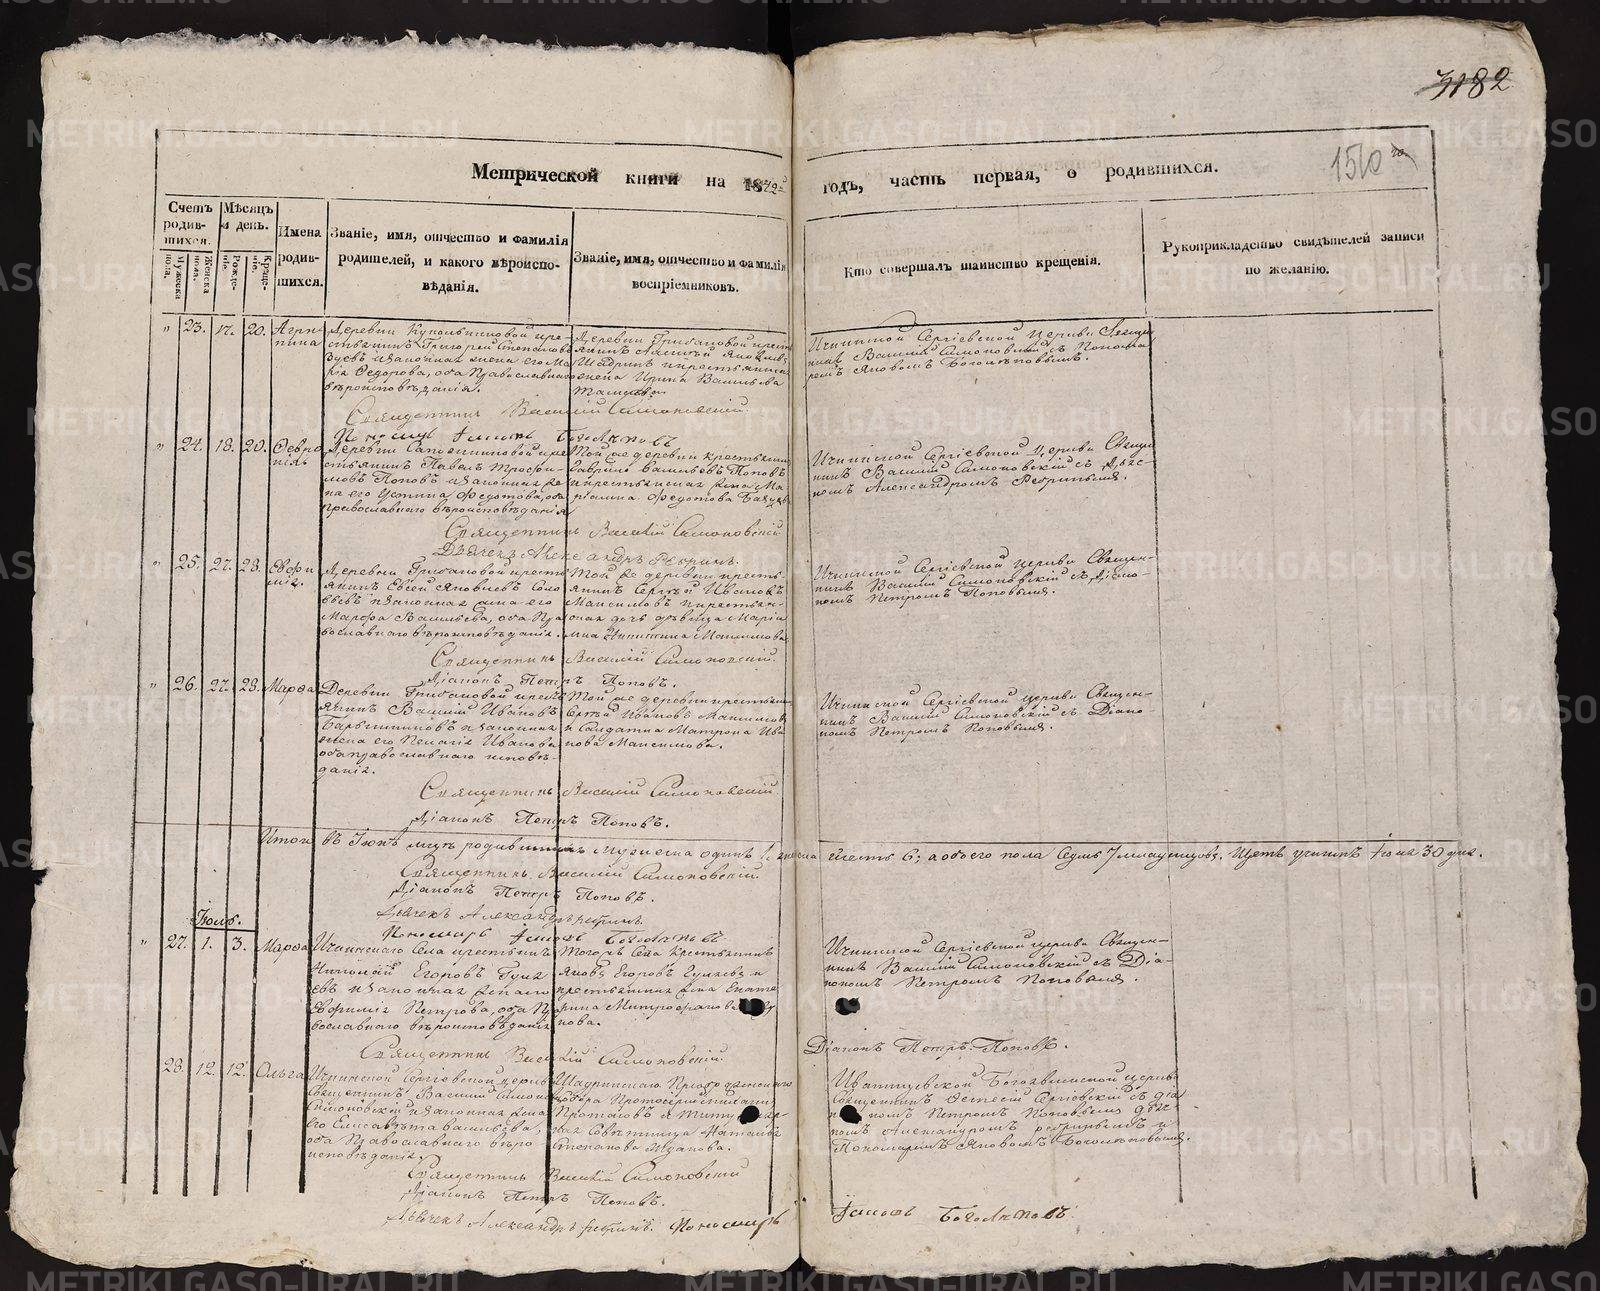 3182
150
Метрической книги на 1842й годъ, часть первая, о родившихся.
Счетъ родившихся.
Мужеска пола.
Женска пола.
Мѣсяцъ и день.
Рожденіе.
Крещеніе.
Имена родившихся.
Званіе, имя, отчество и фамилія родителей, и какого вѣроисповѣданія.
Званіе, имя, отчество и фамилія воспріемниковъ.
Кто совершалъ таинство крещенія.
Рукоприкладство свидѣтелей записи по желанію.
" 23. 17. 20. Агрипина
Деревни
крестьянинъ Григорей Степановъ
Зуевъ и законная жена его Марія Федорова, оба Православнаго
вѣроисповѣданія.
Деревни Грибановой крестьянинъ
Шадринъ и крестьянская
жена Ирина Васильева
Ичкинской Сергіевской церкви Священникъ Василій Симоновскій съ Пономаремъ Яковомъ Боголѣповымъ.
Священникъ Василій Симоновскій.
Пономарь Іаковъ Боголѣповъ
" 24. 18. 20. Февронія
Деревни Сапожниковой крестьянинъ Павелъ Трофимовъ Поповъ и законная жена его Устина Федотова, оба
православнаго вѣроисповѣданія
Той же деревни крестьянинъ
Гаврило Васильевъ Поповъ
и крестьянская жена Маріамна Федотова
Ичкинской Сергіевской Церкви Священникъ Василій Симоновскій съ Дьячкомъ Александромъ Ребринымъ.
Священникъ Василій Симоновскій
Дьячекъ Александръ Ребринъ.
" 25. 27. 28. Евфимія.
Деревни Грибановой крестьянинъ Евсей Яковлевъ Соловьевъ и законная жена его
Марфа Васильева, оба Православнаго вѣроисповѣданія.
Той же деревни крестьянинъ Сергѣй Ивановъ
Максимовъ и крестьянская дочь дѣвица Марія
Никитина Максимова
Ичкинской Сергіевской церкви Священникъ Василій Симоновскій съ Діакономъ Петромъ Поповымъ.
Священникъ Василій Симоновскій.
Діаконъ Петръ Поповъ.
" 26. 27. 28. Марфа
Деревни Грибановой крестьянинъ Василій Ивановъ
Барышниковъ и законная
жена его Пелагія Иванова
оба православнаго исповѣданія.
Той же деревни крестьянинъ
Сергѣй Ивановъ Максимовъ
и Салдатка Матрона Иванова Максимова.
Ичкинской Сергіевской церкви Священникъ Василій Симоновскій съ Діакономъ Петромъ Поповымъ.
Священникъ Василій Симоновскій.
Діаконъ Петръ Поповъ.
Итого въ Іюнѣ мцѣ родившихся мужеска одинъ 1. женска шесть 6; а обоего пола Седмь 7 младенцовъ. Щетъ учиненъ Іюня 30 дня.
Священникъ Василій Симоновскій.
Діаконъ Петръ Поповъ.
Дьячекъ Александръ Ребринъ.
Пономарь Іаковъ Боголѣповъ
Іюль.
" 27. 1. 3. Марфа
Ичкинскаго Села крестьянинъ
Николай Егоровъ Гуляевъ и законная жена его
Евфимія Петрова, оба Православнаго вѣроисповѣданія
Тогожъ Села крестьянинъ
Яковъ Егоровъ Гуляевъ и
крестьянская жена Екатерина Митрофанова
Ичкинской Сергіевской церкви Священникъ Василій Симоновскій съ Діакономъ Петромъ Поповымъ.
Священникъ Василій Симоновскій.
Діаконъ Петръ Поповъ.
28. 12. 12. Ольга
Ичкинской Сергіевской церкви
Священникъ Василій Симоновскій и законная жена
его Елисавета Васильева,
оба Православнаго вѣроисповѣданія.
Шадринскаго
собора Протоіерей
Протасовъ и Титулярная Совѣтница Наталья
Степанова
Богоявленской церкви
Священникъ Алексій Сергіевскій съ Діакономъ Петромъ Поповымъ Дьячкомъ Александромъ Ребринымъ и
Пономаремъ Яковомъ Боголѣповымъ.
Священникъ Василій Симоновскій
Діаконъ Петръ Поповъ.
Дьячекъ Александръ Ребринъ. Пономарь Іаковъ Боголѣповъ.
METRIKI.GASO-URAL.RU